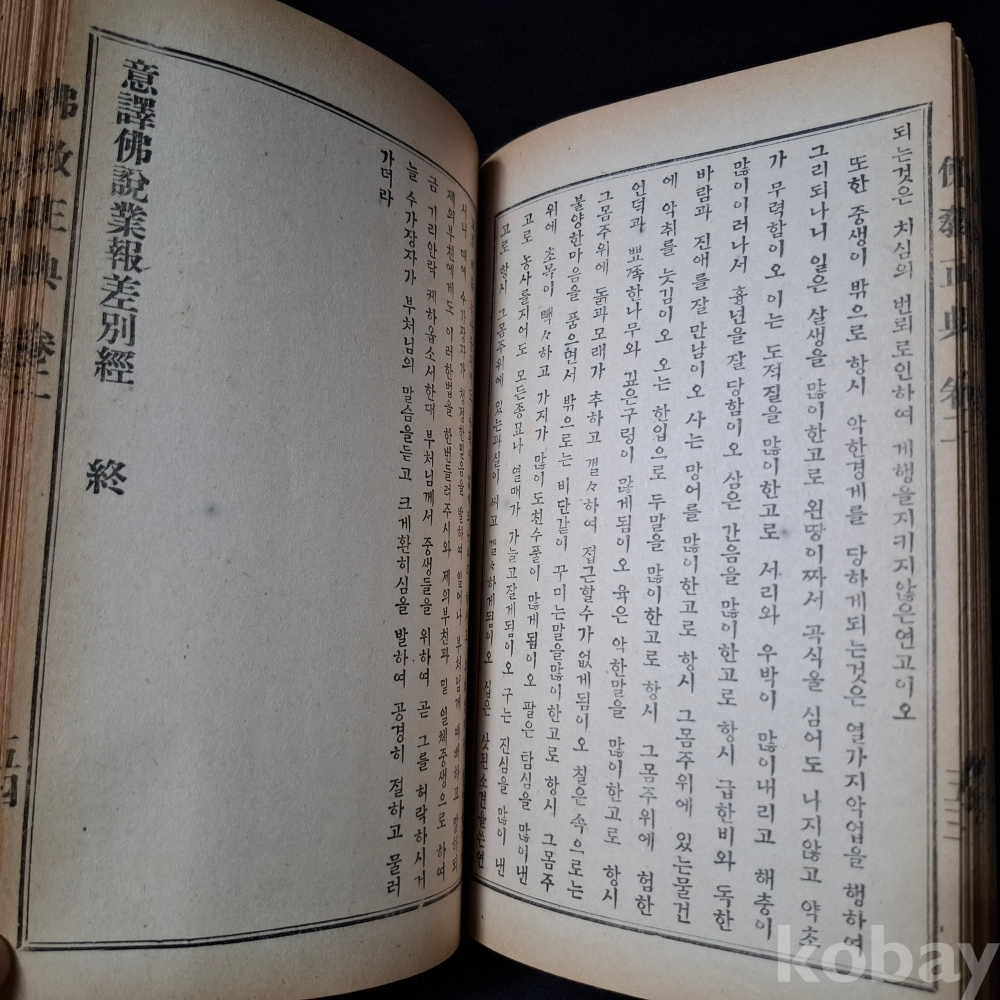 佛敎正典 卷二
되는것은 치심의 번뢰로인하여 게행을지키지않은연고이오
또한 중생이 밖으로 항시 악한경게를 당하게되는것은 열가지악업을 행하여
그리되나니 일은 살생을 많이한고로 왼땅이짜서 곡식을 심어도 나지않고 약초
가 무력함이오 이는 도적질을 많이한고로 서리와 우박이 많이내리고 해충이
많이이러나서 흉년을 잘 당함이오 삼은 간음을 많이한고로 항시 급한비와 독한
바람과 진애를 잘 만남이오 사는 망어를 많이한고로 항시 그몸주위에 있는물건
에 악취를 늣김이오 오는 한입으로 두말을 많이한고로 항시 그몸주위에 험한
언덕과 뾰족한나무와 깊은구렁이 많게됨이오 육은 악한말을 많이한고로 항시
그몸주위에 돍과모래가 추하고 껄々하여 접근할수가없게됨이오 칠은속으로는
불양한마음을 품으면서 밖으로는 비단같이 꾸미는말을많이한고로 항시 그몸주
위에 초목이 빽々하고 가지가 많이도친수풀이 많게됨이오 팔은 탐심을 많이낸
고로 농사를지어도 모든종묘나 열매가 가늘고잘게됨이오 구는 진심을 많이 낸
고로 항시 그몸주위에 있는과실이 씨고 껄々하게됨이오 십은 삿된소견을쓴연
수가장자가 청정한믿음을 발하여 일어나 부처님게 예배하고 말하되
제의부친에게도 이러한법을 한번들려주시와 제의부친과 밑 일체중생으로 하여
금 기리안락 케하옵소서한대 부처님께서 중생들을 위하여 곧 그를 허락하시거
늘 수가장자가 부처님의 말슴을듣고 크게환히심을 발하여 공경히 절하고 물러
가더라
意譯佛說業報差別經 終
佛敎正典 卷二
五四
kobay